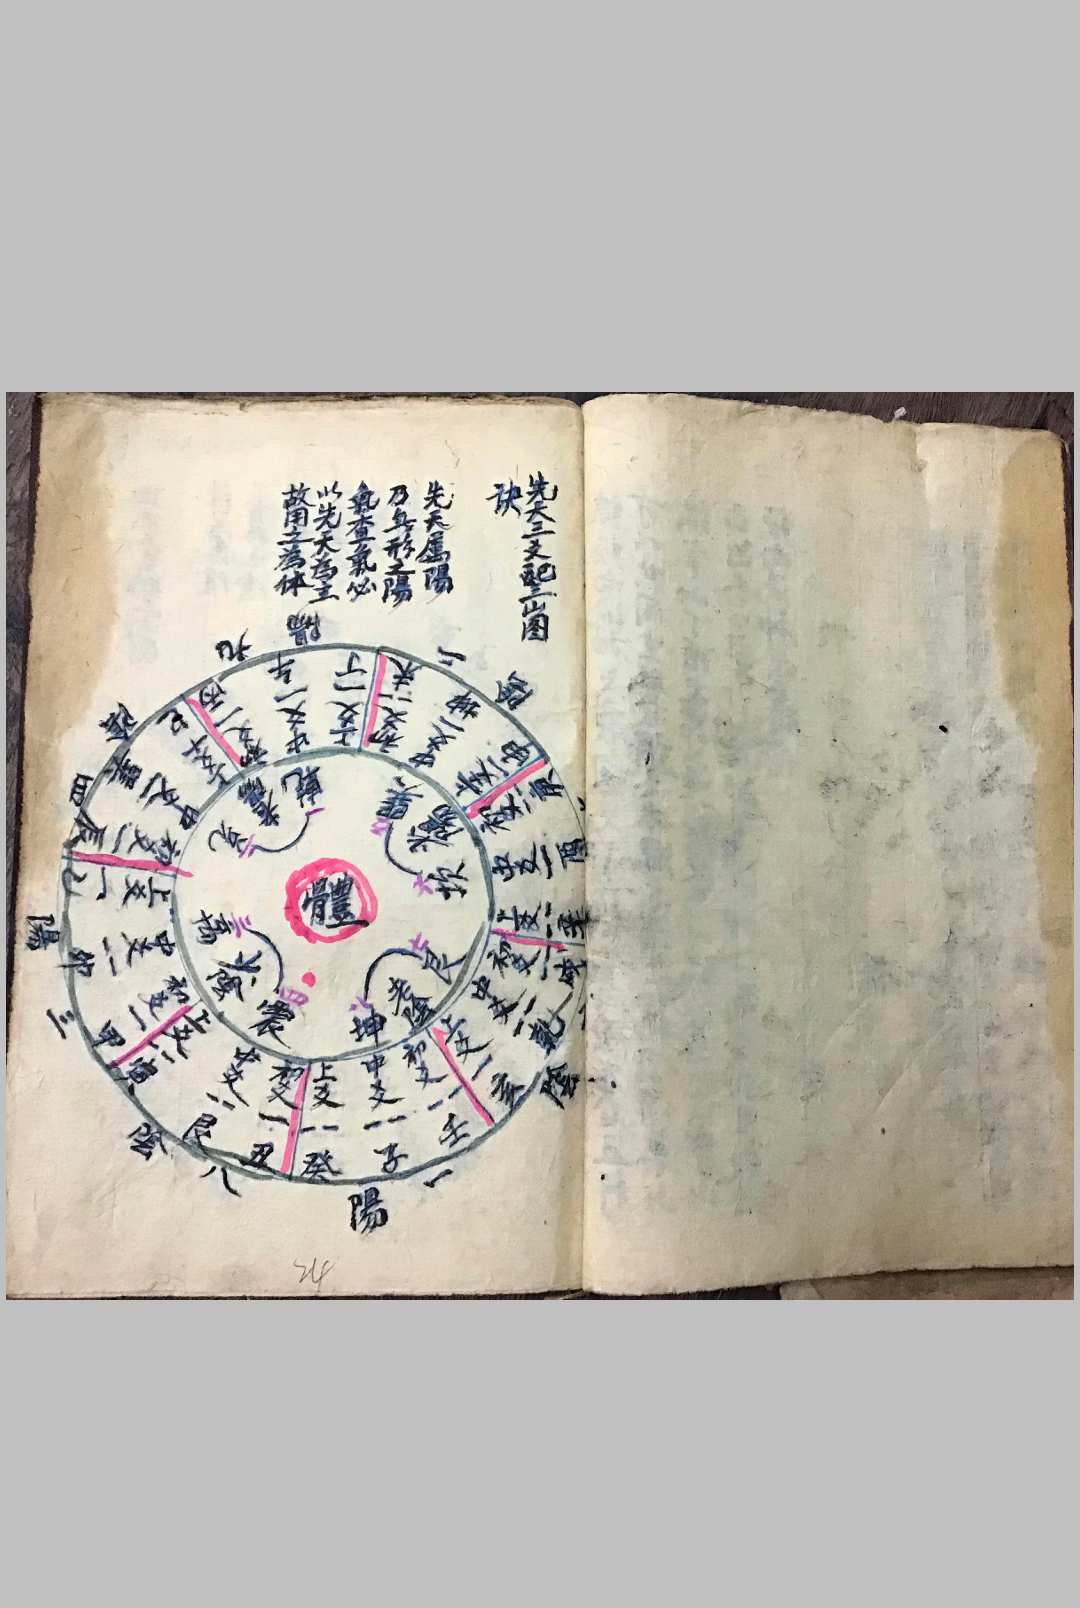 先天三爻配三山图
诀
先天属陽
乃無形之陽
氣查氣必
以先天為主
故用之為体
陽
九
午
丁
未
坤
申
陰
庚
酉
辛
乾
亥
陰
壬
子
癸
一
陽
丑
艮
八
陰
寅
甲
三
卯
乙
陽
辰
四
巽
巳
陰
丙
初爻
中爻
上爻
初爻
中爻
上爻
初爻
中爻
上爻
初爻
中爻
上爻
初爻
中爻
上爻
初爻
中爻
上爻
初爻
中爻
上爻
初爻
中爻
上爻
乾
九
老陽
兌
四
巽
二
少陽
坎
七
離
三
少陰
震
八
艮
六
老陰
坤
一
體
24